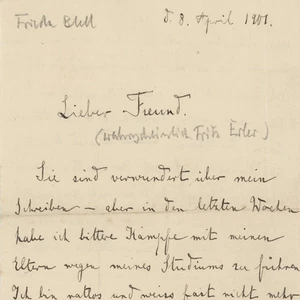 Frieda Blell
d. 8. April 1901.
Lieber Freund.
(wahrscheinlich Fritz Erler)
Sie sind verwundert über mein
Schreiben – aber in den letzten Wochen
habe ich bittere Kämpfe mit meinen
Eltern wegen meines Studiums zu führen
Ich bin ratlos und weiss fast nicht mehr